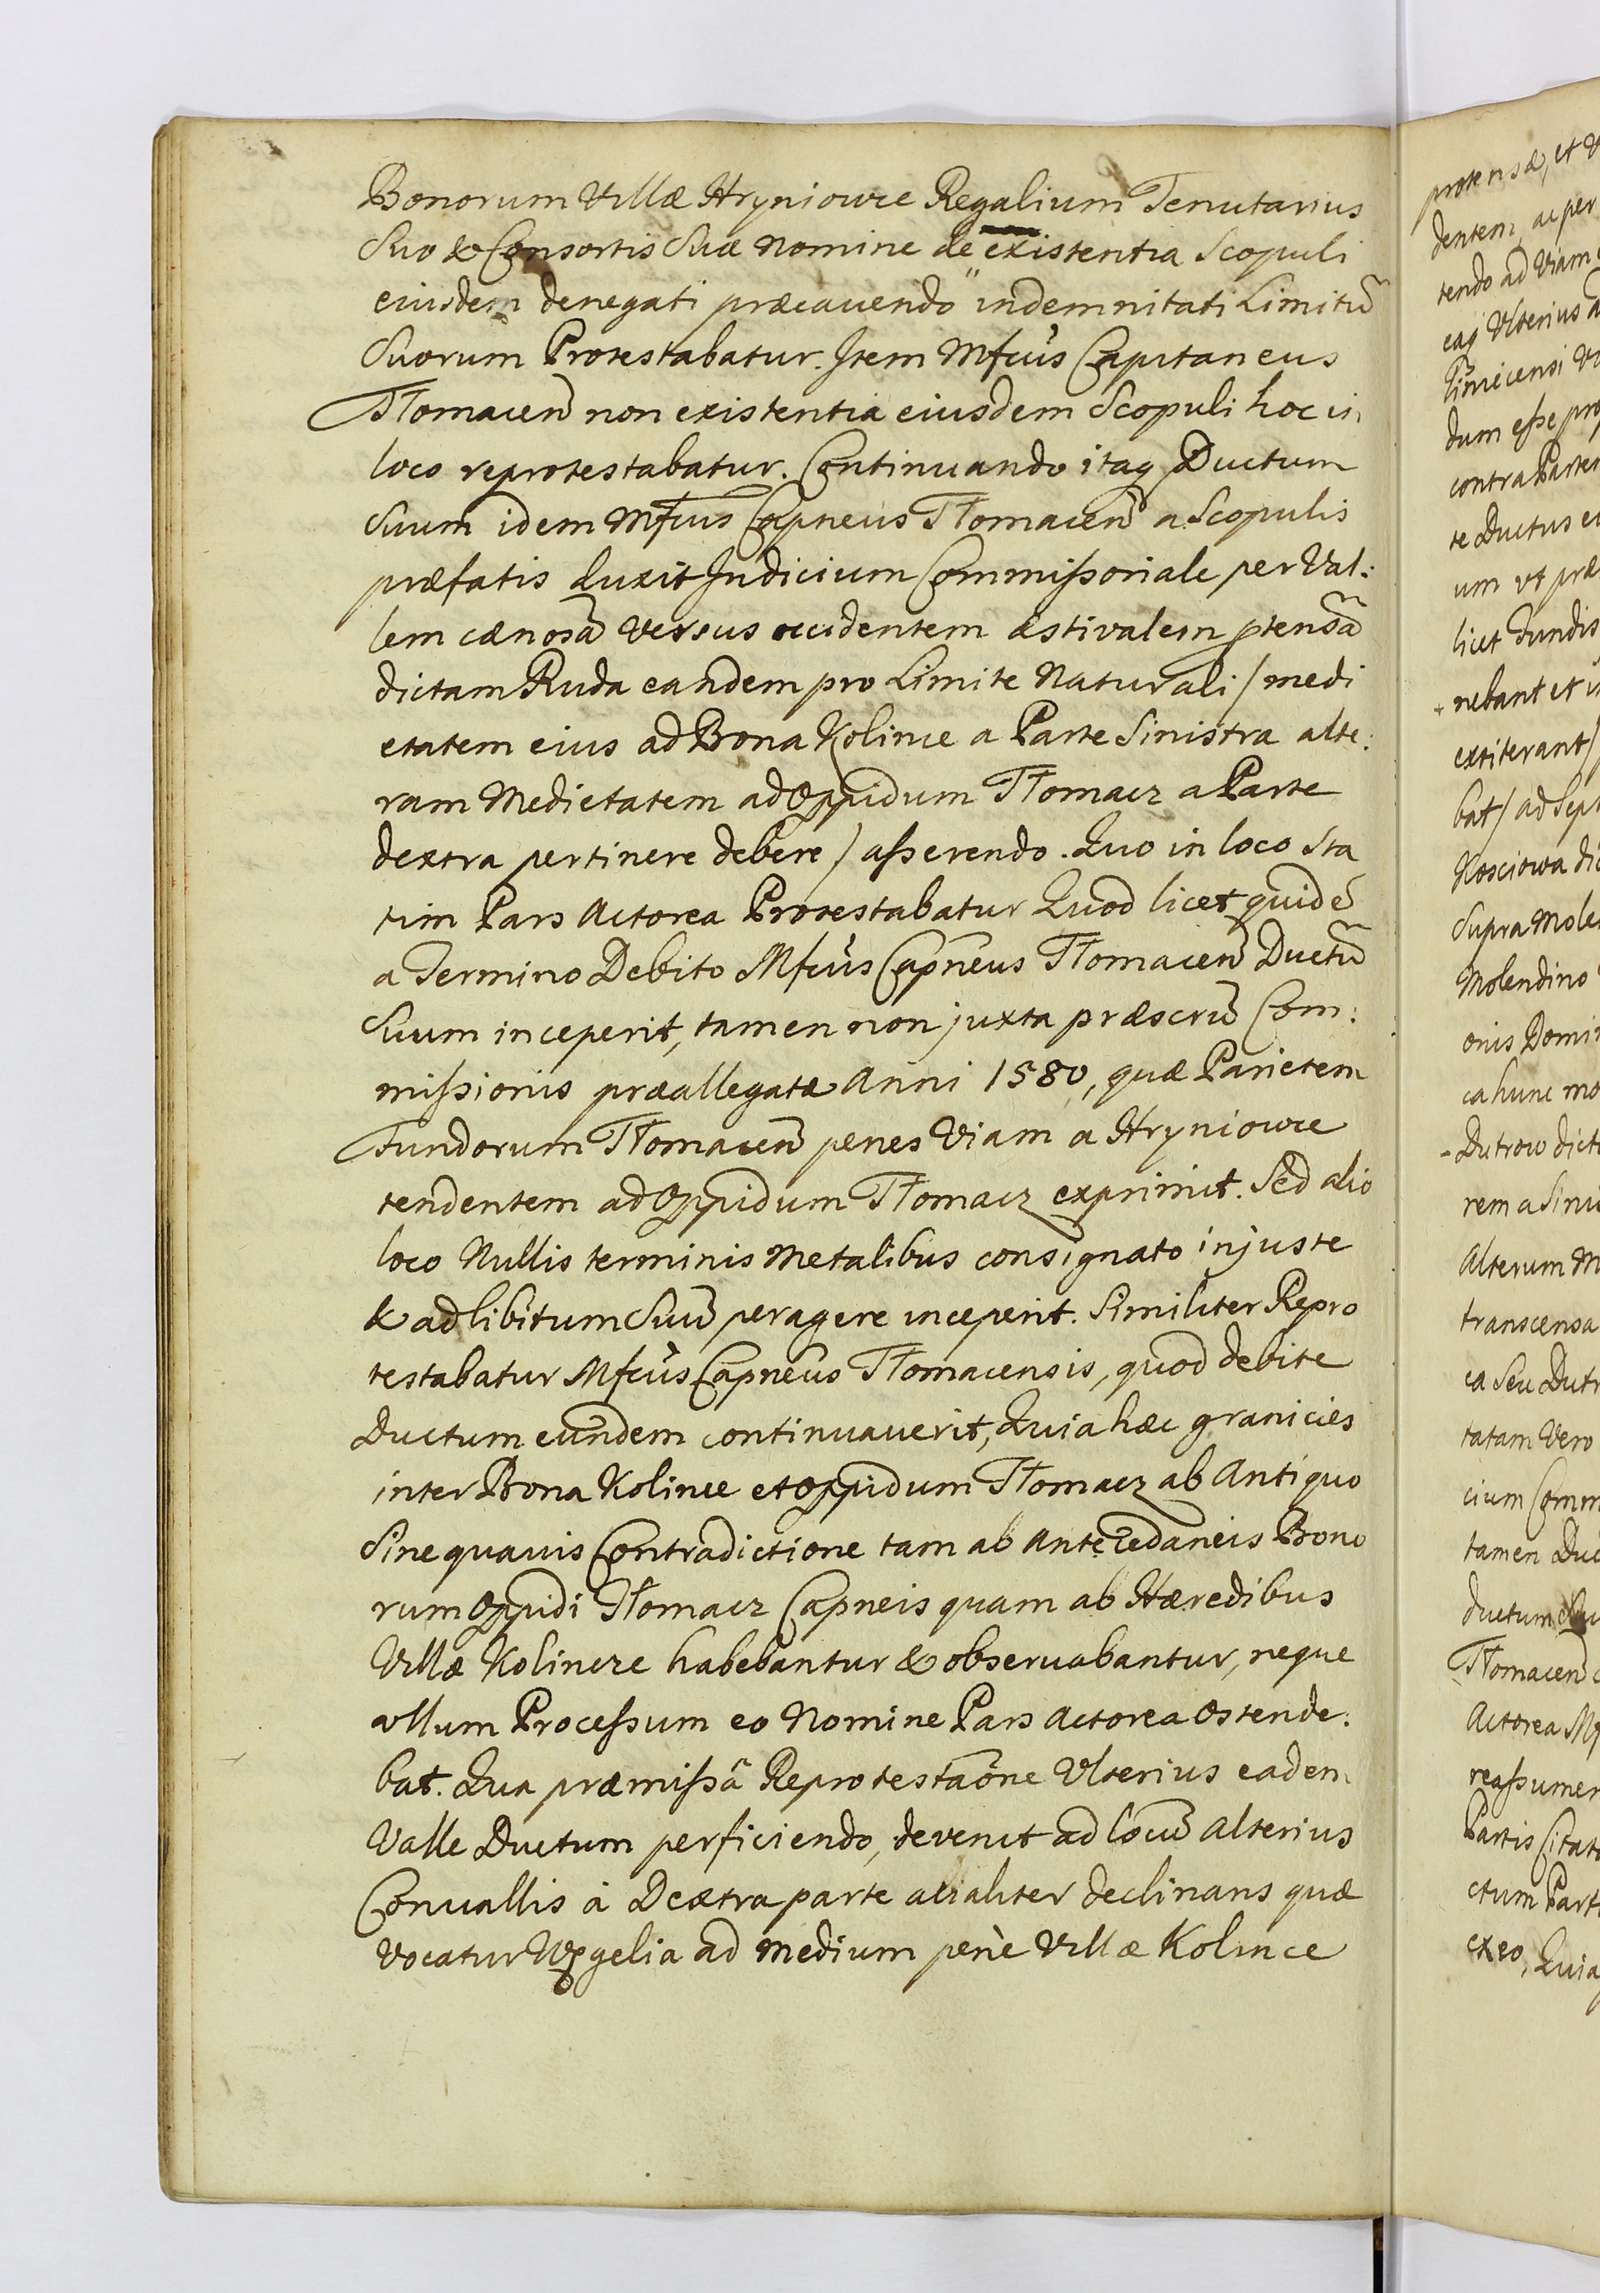 Bonorum Villæ Hryniowce Regalium Tenutarius
Suo & Consortis Suæ nomine de existentia Scopuli
eiusdem denegati præcauendo indemnitati Limitũ
Suorum Protestabatur. Item Mfcus Capitaneus
Tłomacen̄ non existentia eiusdem Scopuli hoc in
loco reprotestabatur. Continuando itaq̨ Ductum
Suum idem Mfcus Capneus Tłomacen̄ a Scopulis
præfatis duxit Judicium Commissoriale per Val:
lem cænosã versus occidentem æstivalem ptensã
dictam Ruda eandem pro Limite Naturali / medi
etatem eius ad Bona Kolince a Parte Sinistra alte:
ram Medietatem ad Oppidum Tłomacz a Parte
dextra pertinere debere / asserendo. Quo in loco Sta
tim Pars Actorea Protestabatur Quod licet quidẽ
a Termino Debito Mfcus Capneus Tłomacen̄ Ductũ
Suum inceperit, tamen non juxta præscrũ Com:
missionis præallegatæ Anni 1580, quæ Parietem
Fundorum Tłomacen̄ penes Viam a Hryniowce
tendentem ad Oppidum Tłomacz exprimit. Sed alio
loco Nullis terminis Metalibus consignato injuste
& ad libitum Suũ peragere inceperit. Similiter Repro
testabatur Mfcus Capneus Tłomacensis, quod debite
Ductum eundem continuauerit, Quia hæc granicies
inter Bona Kolince et Oppidum Tłomacz ab Antiquo
Sine quauis Contradictione tam ab Antecedaneis Bono
rum Oppidi Tłomacz Capneis quam ab Hæredibus
Villæ Kolincze habebantur & obseruabantur, neque
vllum Processum eo Nomine Pars Actorea Ostende:
bat. Qua præmissâ Reprotestaõne Vlterius eadem
Valle Ductum perficiendo, devenit ad locũ Alterius
Conuallis à Dextra parte declinans quæ
vocatur ad medium penè Villæ Kolince
protensæ, et
dentem, ac per
tendo ad Viam
eaq̨ Vlterius
dum esse
contra Partem
te Ductus
um vt præ
licet Fundis
nebant et
extiterant /
bat / ad Sept
Kosciowa
Supra Mole
Molendino
onis Domi
ca hunc mo
Dutrow dict
rem a Sini
Alterum M
transcensa
ca Seu Dutr
tatam Vero
cium Comm
tamen Duc
ductum
Tłomacen̄
Actorea M
reassumen
Partis Citat
ctum Part
ex eo, Quia